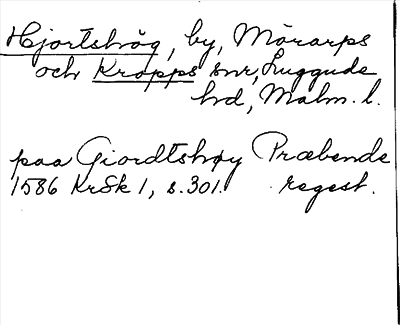 Hjortshög, by, Mörarps
och Kropps snr, Luggude
hd, Malm. l.
paa Giordtshøy Præbende
1586 KrSk 1, s. 301. regest.